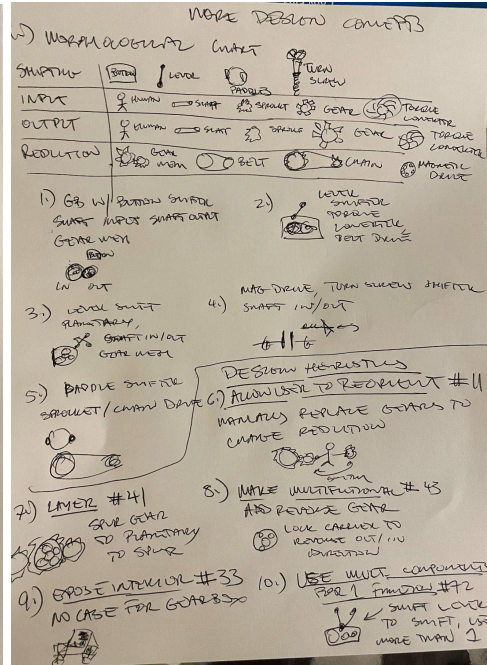 MORE DESIGN CONCEPTS
MORPHOLOGICAL CHART
SHIFTING BUTTON LEVER PADDLES TURN SCREW
INPUT HUMAN SHAFT SPROCKET GEAR TORQUE CONVERTER
OUTPUT HUMAN SHAFT SPROCKET GEAR TORQUE CONVERTER
REDUCTION GEAR MESH BELT CHAIN MAGNETIC DRIVE
1.) GB W/ BUTTON SHIFTER
SHAFT INPUT SHAFT OUTPUT
GEAR MESH
BUTTON
IN OUT
2.) LEVER
SHIFTER
TORQUE
CONVERTER
BELT DRIVE
3.) LEVER SHIFT
PLANETARY,
SHAFT IN/OUT
GEAR MESH
4.) MAG DRIVE, TURN SCREW SHIFTER
SHAFT IN/OUT
5.) PADDLE SHIFTER
SPROCKET/CHAIN DRIVE
DESIGN HEURISTICS
6.) ALLOW USER TO REORIENT #11
MANUALLY REPLACE GEARS TO
CHANGE REDUCTION
7.) LAYER #41
SPUR GEAR
TO PLANETARY
TO SPUR
8.) MAKE MULTIFUNCTIONAL #43
ADD REVERSE GEAR
LOCK CARRIER TO
REVERSE OUT/IN
DIRECTION
9.) EXPOSE INTERIOR #33
NO CASE FOR GEARBOX
10.) USE MULT. COMPONENTS
FOR 1 FUNCTION #72
SHIFT LEVER
TO SHIFT, USE
MORE THAN 1